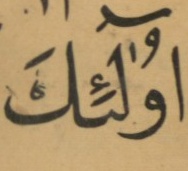 اُولٰٓئِكَ